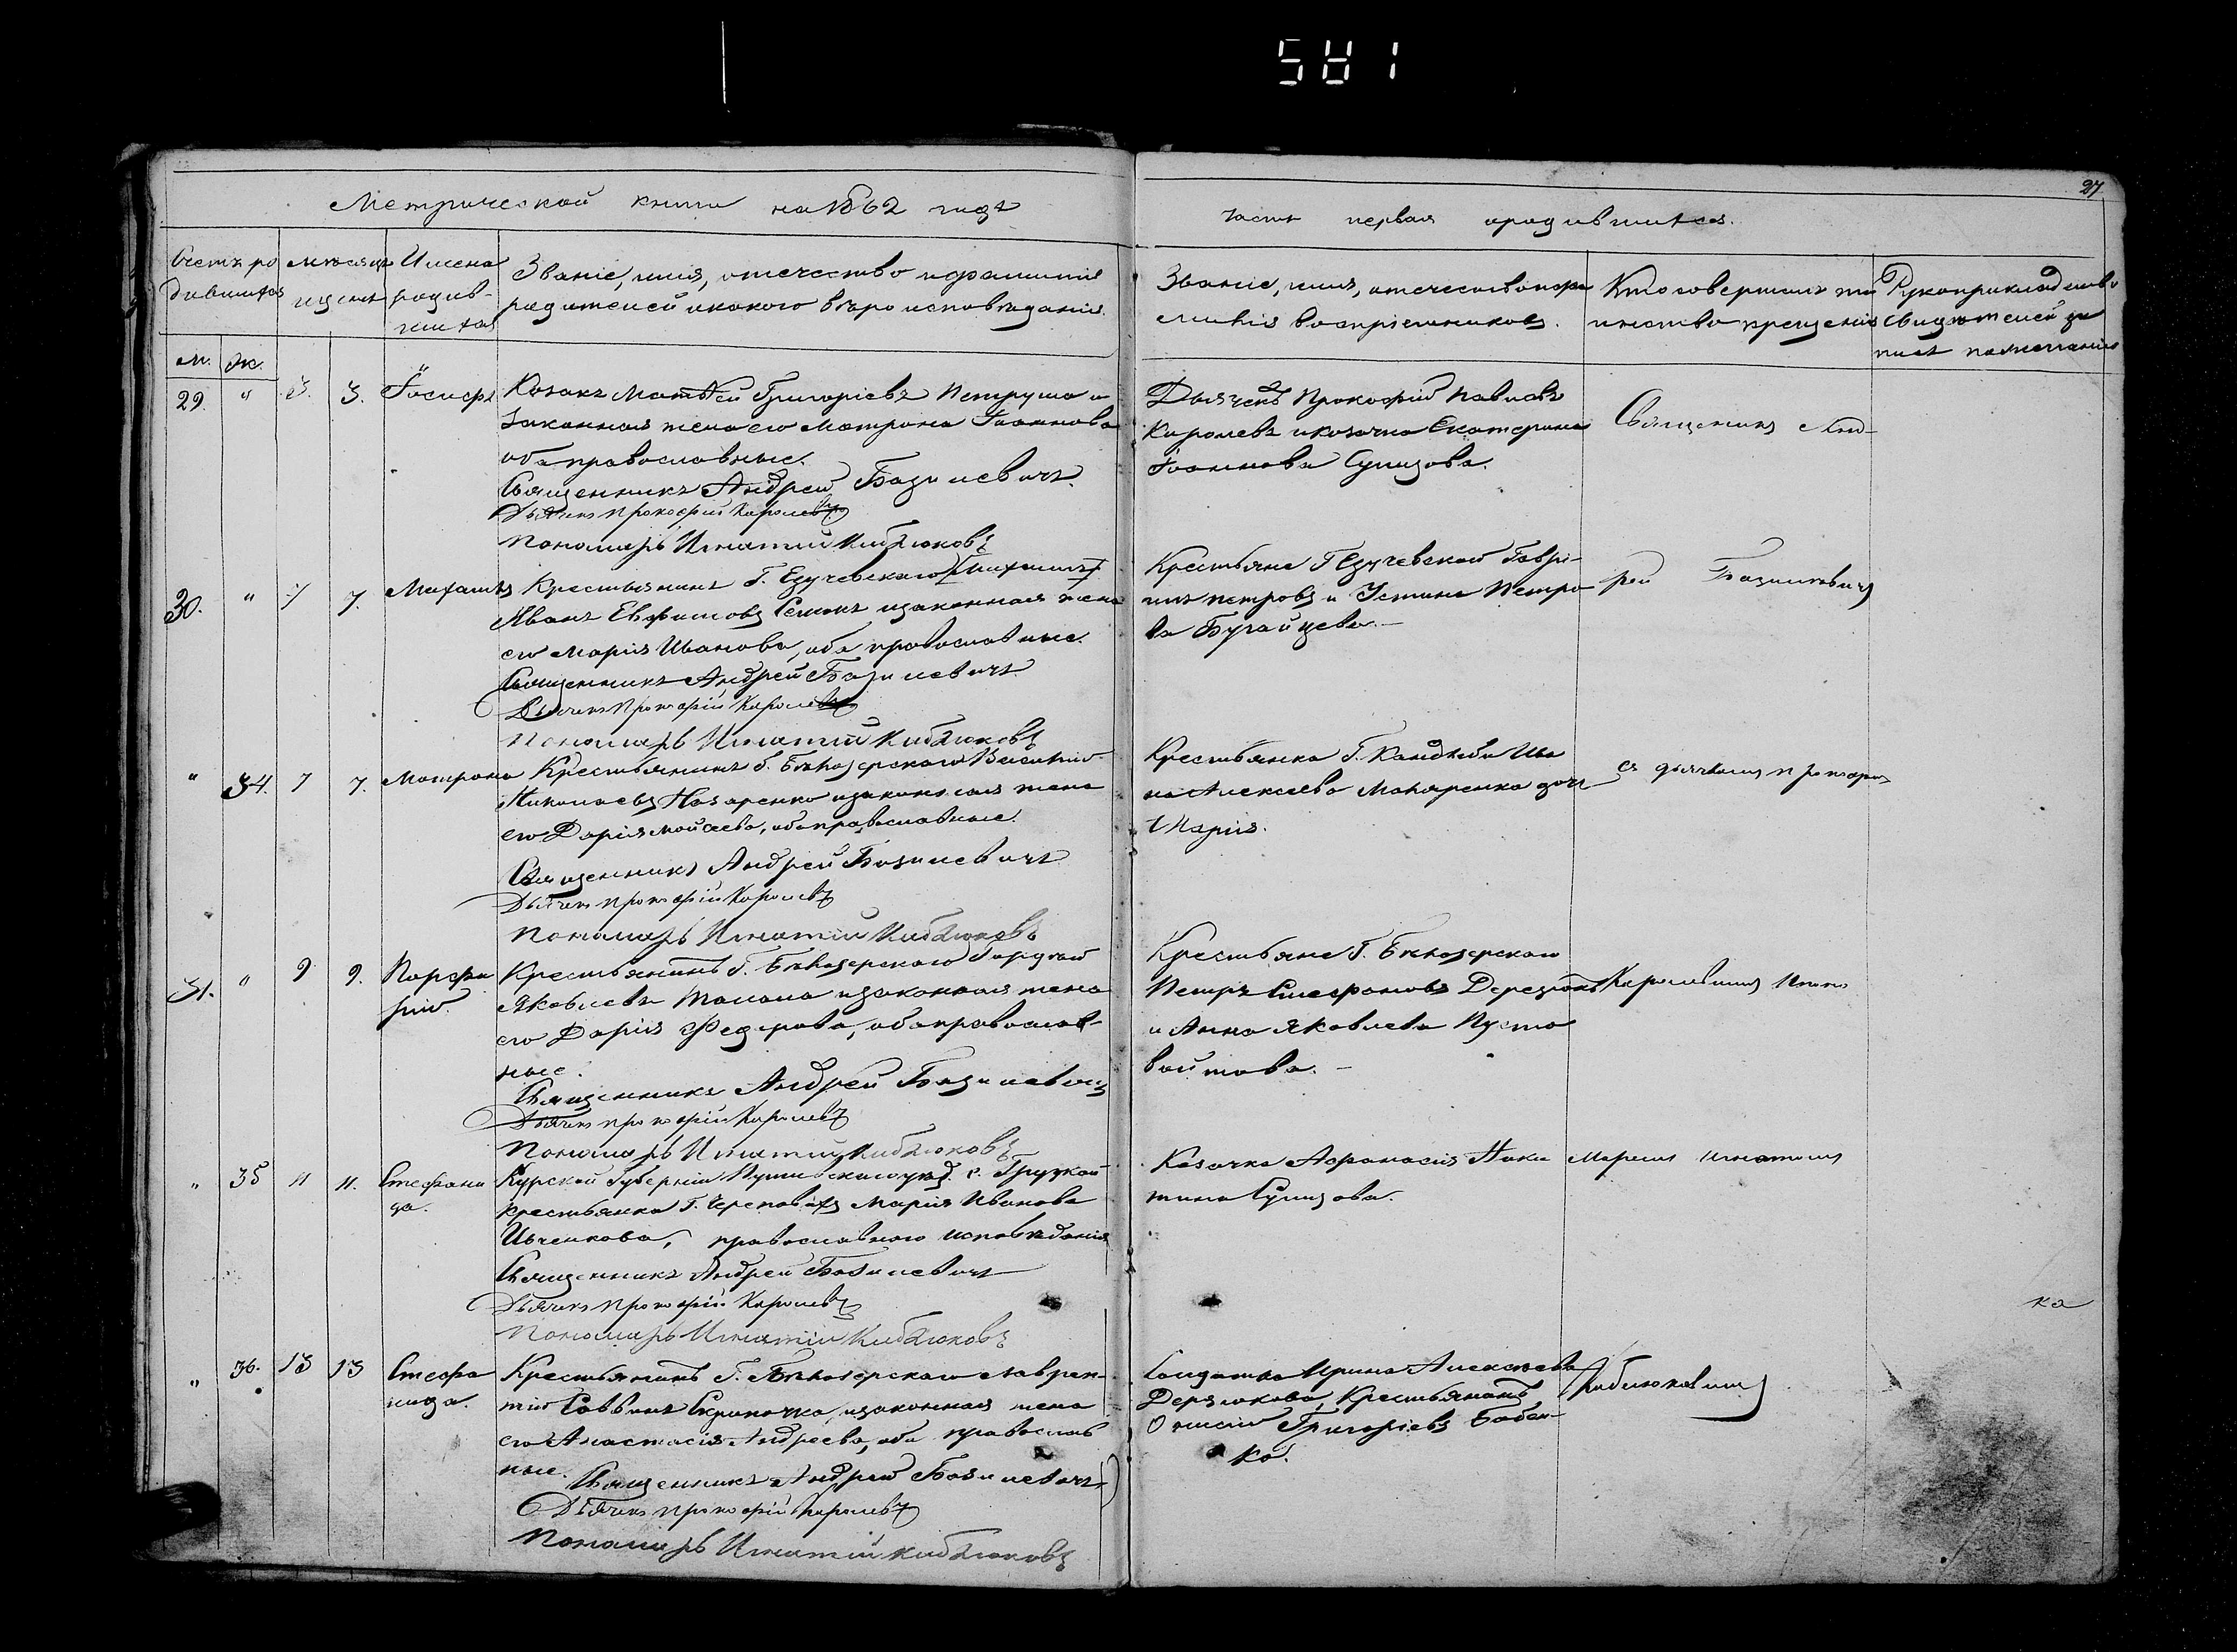 581
27
Метрической книги на 1862 годъ
Часть первая о родившихся.
Счетъ ро
дившихся
мѣсяцъ
и день
Имена
родив-
шихся
Званіе, имя, отечество и фамилія
родителей и какого вѣроисповѣданія.
Званіе, имя, отечество и фа
милія воспріемниковъ.
Кто совершалъ та
инство крещенія
Рукоприкладство
свидѣтелей за
пися по желанію
м. ж.
29. " 3. 3. Іосифъ
Козакъ Матѳей Григоріевъ Петруша и
законная жена его Матрона Іоаннова
оба православные.
Священникъ Андрей Базилевичъ.
Дьячекъ Прокофій Королевъ
Пономарь Игнатій Кибалюковъ
Дьячекъ Прокофій Павловъ
Королевъ и козачка Екатерина
Іоаннова Супизова.
Священникъ Анд-
30. " 7 7. Михаилъ
Крестьянинъ Г. Езучевскаго
Иванъ Евфимовъ и законная жена
его Марія Иванова, оба православные.
Священникъ Андрей Базилевичъ
Дьячекъ Прокофій Королевъ
Пономарь Игнатій Кибалюковъ
Крестьяне Г Езучевской Гаври-
илъ Петровъ и Устина Петро
ва Бугайцева.
рей Базилевичъ
" 34. 7 7. Матрона
Крестьянинъ Г. Бѣлозерскаго Василій
Николаевъ Назаренко и законная жена
его Дарія Мойсеева, оба православные.
Священникъ Андрей Базилевичъ
Дьячекъ Прокофій Королевъ
Пономарь Игнатій Кибалюковъ
Крестьянка Г. Кандыбы
на Алексеева дочь
Марія.
съ дьячкомъ Прокофі
31. " 9 9. Порфи
рій.
Крестьянинъ Г. Бѣлозерскаго Гордей
Яковлевъ и законная жена
его Дарія Федорова, оба православ-
ные.
Священникъ Андрей Базилевичъ
Дьячекъ Прокофій Королевъ
Пономарь Игнатій Кибалюковъ
Крестьяне Г. Бѣлозерскаго
Петръ Стефановъ Дерезюкъ
и Анна Яковлева Пусто
войтова.
Королевымъ Поно
" 35 11 11. Стефани
да.
Курской Губерніи Путивльскаго уѣзд. с. Грузкой
крестьянка Г. Марія Иванова
Ильченкова, православнаго исповѣданія
Священникъ Андрей Базилевичъ
Дьячекъ Прокофій Королевъ
Пономарь Игнатій Кибалюковъ
Козачка Афанасія Ники
тина Супизова.
маремъ Игнатіемъ
ка
" 36. 13 13 Стефа
нида.
Крестьянинъ Г. Бѣлозерскаго Лаврен-
тій Саввинъ Скрипочка и законная жена
его Анастасія Андреева, оба православ
ные. Священникъ Андрей Базилевичъ
Дьячекъ Прокофій Королевъ
Пономарь Игнатій Кибалюковъ
Солдатка Ирина Алексѣева
Дерзюкова, Крестьянинъ
Григоріевъ Бабен-
ко.
Кибалюковымъ